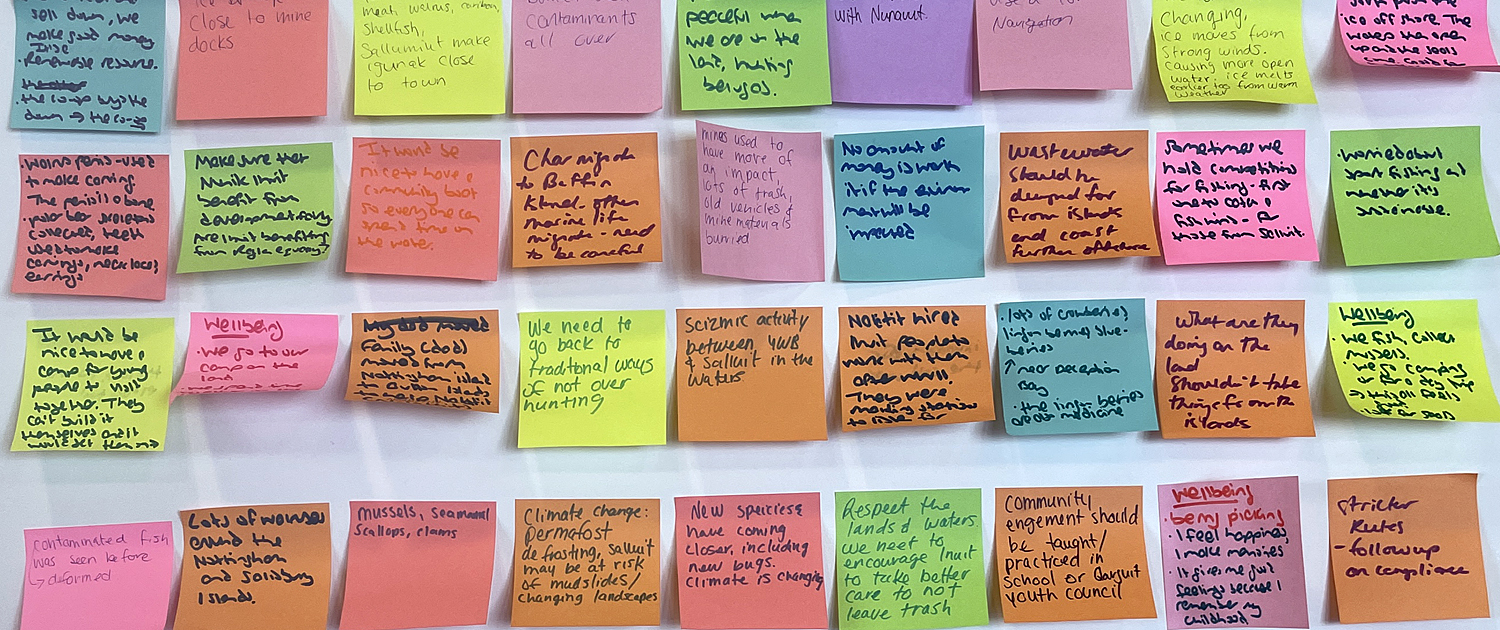 sell down, we
make good money
Renewable resource.
close to mine
docks
meat, walrus, caribou,
Shellfish,
Sallumiut make
igunak close
to town
contaminants
all over
peaceful when
we are on the
land, hunting
belugas.
with Nunavut.
Navigation
Changing,
ice moves from
strong winds.
causing more open
water. ice melts
earlier too from warm
weather
ice off shore. The
waves then open
to make carving.
The penis is a bone.
polar bear skeletons
collected, teeth
used to make
carvings, necklaces,
earrings
Make sure that
Nunavik Inuit
benefit from
development fairly
It would be
nice to have a
community boat
so everyone can
spend time on
the water.
Char migrate
to Baffin
Island. other
marine life
migrate - need
to be careful
mines used to
have more of
an impact,
lots of trash,
old vehicles &
mine materials
burried
No amount of
money is worth
it if the environ
ment will be
impacted
Wastewater
should be
dumped far
from islands
and coast
further offshore
Sometimes we
hold competitions
for fishing - first
one to catch a
fish wins - for
those from Salluit.
·Worried about
sport fishing at
whenever it's
It would be
nice to have a
camp for young
people to visit
together. They
can't build it
themselves and it
would get them out
Wellbeing
·We go to our
camp on the
land
Family (dad)
moved from
Nottingham island
We need to
go back to
traditional ways
of not over
hunting
Scizmic activity
between YWB
& Salluit in the
waters.
hired
Inuit people to
work with them
They were
·lots of cranberries
lingonberries, blue-
berries
↑ near Deception
Bay
·the lingonberries
are our medicine
What are they
doing on the
land
Shouldn't take
things from the
islands
Wellbeing
·We fish, collect
mussels.
·We go camping
contaminated fish
was seen before
↳ deformed
Lots of walruses
around the
Nottingham
and Salisbury
Islands.
mussels, seaweed
scallops, clams
Climate change:
Permafost
defrosting, salluit
may be at risk
of mudslides/
changing landscapes
New species
have coming
closer, including
new bugs.
Climate is changing
Respect the
lands & waters
we need to
encourage Inuit
to take better
care to not
leave trash
Community
engement should
be taught/
practiced in
school or Qarjuit
youth council
Wellbeing
·berry picking
·I feel happiness,
I make memories
·It gives me joy
feelings because I
remember my
childhood
Stricter
Rules
-followup
on compliance